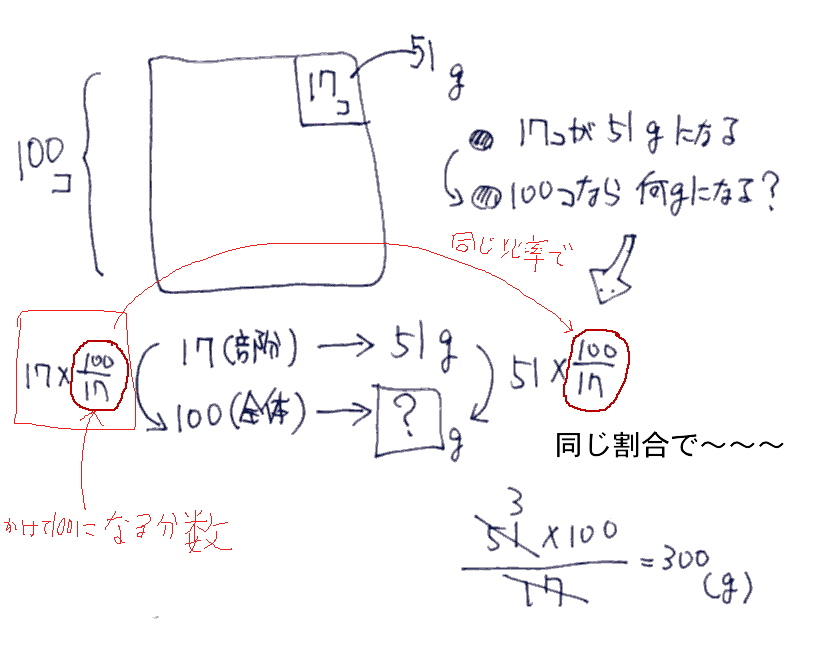 51g
17コ
100コ
17コが51gになる
100コなら何gになる?
同じ比率で
17(部分)→51g
17×100/17
51×100/17
100(全体)→?g
同じ割合で〜〜〜
かけて100になる分数
3
51×100/17=300(g)